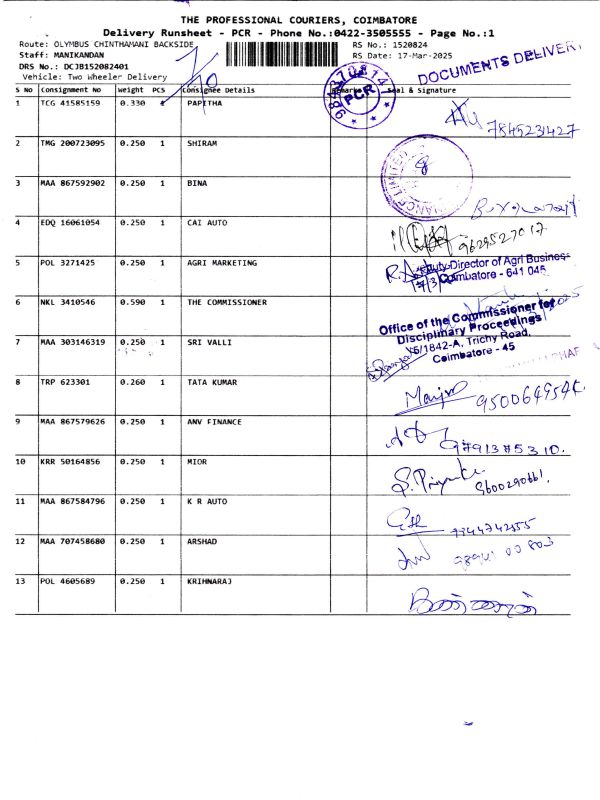 THE PROFESSIONAL COURIERS, COIMBATORE
Delivery Runsheet - PCR - Phone No.:0422-3505555 - Page No.:1
Route: OLYMBUS CHINTHAMANI BACKSIDE
RS No.: 1520824
Staff: MANIKANDAN
RS Date: 17-Mar-2025
DRS No.: DCJB152082401
Vehicle: Two Wheeler Delivery
DOCUMENTS DELIVERY
PCR
S No Consignment No Weight PCS Consignee Details Remarks Seal & Signature
1 TCG 41585159 0.330 PAPITHA 7845231427
2 TMG 200723095 0.250 1 SHIRAM
3 MAA 867592902 0.250 1 BINA
4 EDQ 16061054 0.250 1 CAI AUTO 9629527017
5 POL 3271425 0.250 1 AGRI MARKETING
Deputy-Director of Agri Business
Coimbatore - 641 045
6 NKL 3410546 0.590 1 THE COMMISSIONER
Office of the Commissioner for
Disciplinary Proceedings
V5/1842-A, Trichy Road,
Coimbatore - 45
7 MAA 303146319 0.250 1 SRI VALLI
8 TRP 623301 0.260 1 TATA KUMAR
9 MAA 867579626 0.250 1 ANV FINANCE
10 KRR 50164856 0.250 1 MIOR S. Priyanka 8600290661.
11 MAA 867584796 0.250 1 K R AUTO
12 MAA 707458680 0.250 1 ARSHAD
13 POL 4605689 0.250 1 KRIHNARAJ